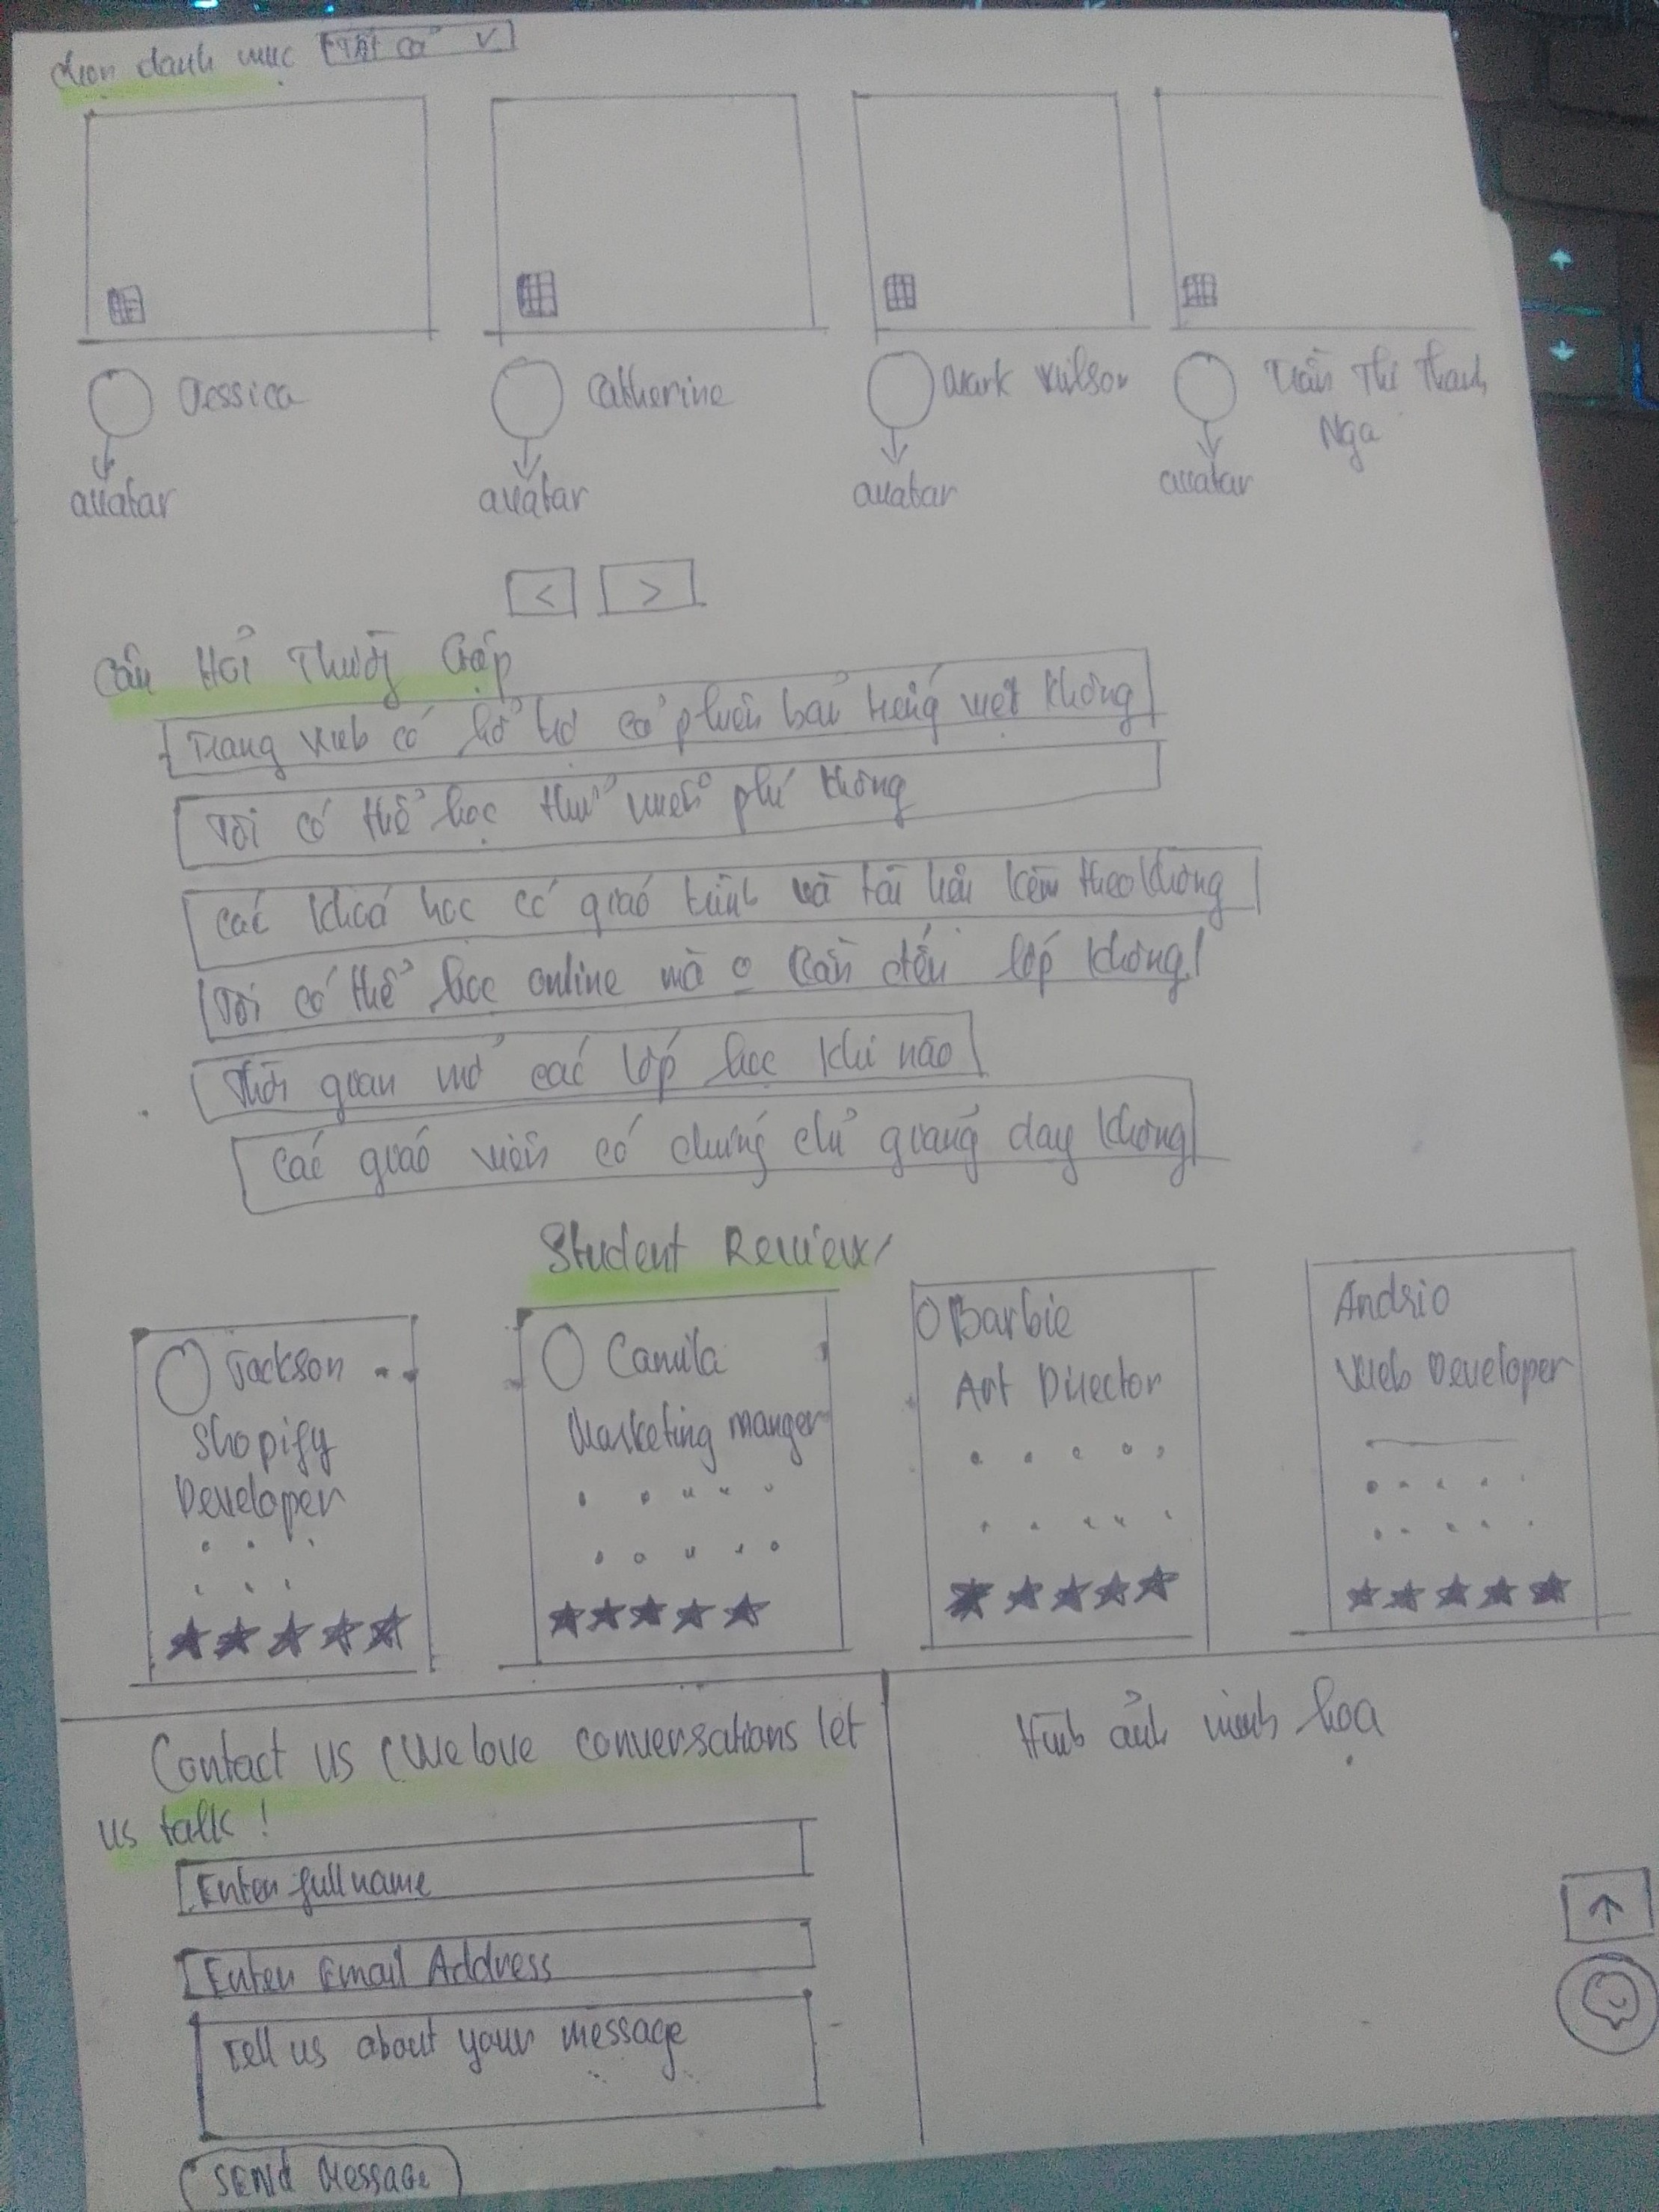 chọn danh mục Tất cả v
Jessica Catherine Mark Wilson Trần Thị Thanh
Nga
avatar avatar avatar avatar
< >
Câu Hỏi Thường Gặp
Trang Web có hổ trợ cả phiên bản tiếng việt không
Tôi có thể học thử miễn phí không
các khoá học có giáo trình và tài liệu kèm theo không
Tôi có thể học online mà o cần đến lớp không
Thời gian mở các lớp học khi nào
các giáo viên có chứng chỉ giảng dạy không
Student Review
Jackson
Shopify
Developer
Camila
Marketing manger
Barbie
Art Director
Andrio
Web Developer
Contact us (We love conversations let
us talk!
Enter fullname
Enter Email Address
Tell us about your message
SEND Message
Hình ảnh minh họa